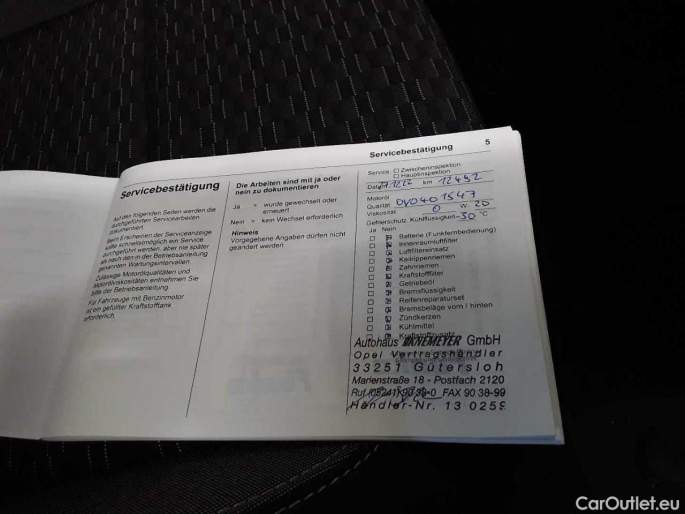 Servicebestätigung 5
Servicebestätigung
Auf den folgenden Seiten werden die
durchgeführten Servicearbeiten
dokumentiert.
Beim Erscheinen der Serviceanzeige
sollte schnellstmöglich ein Service
durchgeführt werden, aber nie später
als nach den in der Betriebsanleitung
genannten Wartungsintervallen.
Zulässige Motorölqualitäten und
Motorölviskositäten entnehmen Sie
bitte der Betriebsanleitung.
Für Fahrzeuge mit Benzinmotor
ist ein gefüllter Kraftstofftank
erforderlich.
Die Arbeiten sind mit ja oder
nein zu dokumentieren
Ja = wurde gewechselt oder
erneuert
Nein = kein Wechsel erforderlich
Hinweis
Vorgegebene Angaben dürfen nicht
geändert werden.
Service: Zwischeninspektion
Hauptinspektion
Datum km 12452
Motoröl
Qualität OV0401547
Viskosität 0 W 20
Gefrierschutz Kühlflüssigkeit -30 °C
Ja Nein
Batterie (Funkfernbedienung)
Innenraumluftfilter
Luftfiltereinsatz
Keilrippenriemen
Zahnriemen
Kraftstofffilter
Getriebeöl
Bremsflüssigkeit
Reifenreparaturset
Bremsbeläge vorn / hinten
Zündkerzen
Kühlmittel
Kraftstoffzusatz
Autohaus GmbH
Opel Vertragshändler
33251 Gütersloh
Marienstraße 18 - Postfach 2120
Ruf (05241) 90 38-0 FAX 90 38-99
Händler-Nr. 13 0259
CarOutlet.eu